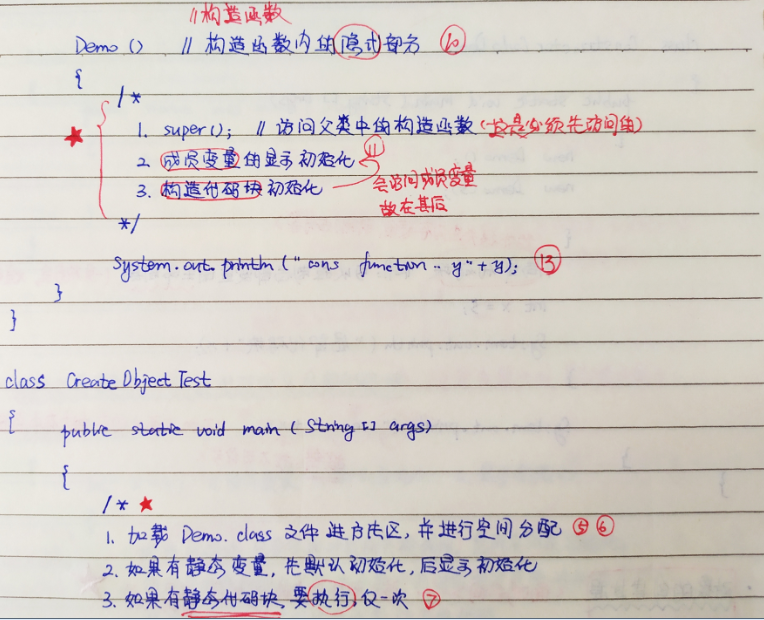 //构造函数
Demo () // 构造函数内的隐式部分 ⑩
{
/*
1. super(); // 访问父类中的构造函数 (这是必须先访问的)
2. 成员变量的显示初始化 ⑪
3. 构造代码块初始化 会访问成员变量
故在其后
*/
System.out.println ("cons function .. y"+y); ⑬
}
}
class CreateObjectTest
{
public static void main (String [] args)
{
/* ★
1. 加载 Demo.class 文件进方法区, 并进行空间分配 ⑤ ⑥
2. 如果有静态变量, 先默认初始化, 后显示初始化
3. 如果有静态代码块, 要执行, 仅一次 ⑦